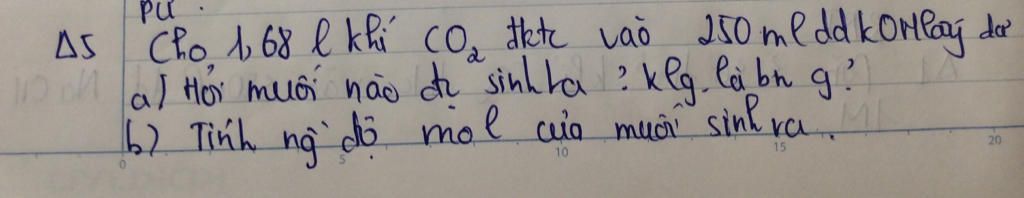 pư.
Δ5 Cho 1,68 l khí CO₂ đktc vào 250 ml dd KOH lấy dư
a) Hỏi muối nào đc sinh ra? klg. là bn g?
b) Tính ng̀ độ mol của muối sinh ra.
0 5 10 15 20